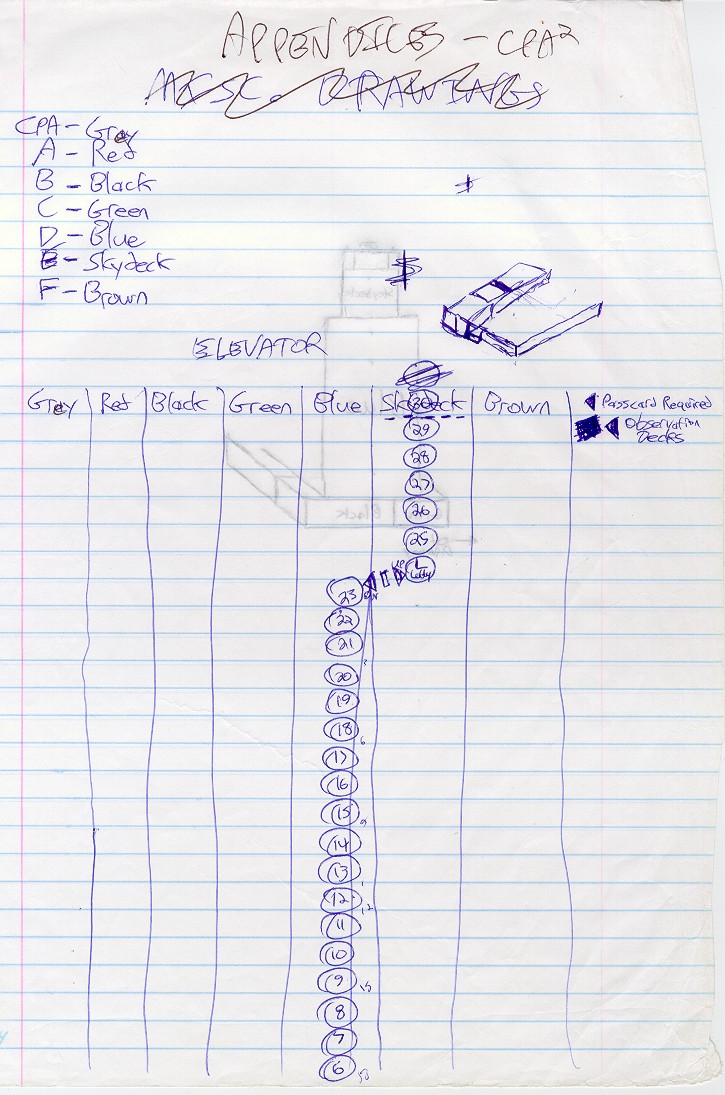 APPENDICES - CPA²
MISC. DRAWINGS
CPA - Grey
A - Red
B - Black
C - Green
D - Blue
E - Skydeck
F - Brown
ELEVATOR
Grey Red Black Green Blue Skydeck Brown
Passcard Required
Observation
Decks
30
29
28
27
26
25
L
Lobby
23
22
21
20
19
18
6
17
16
15
9
14
13
12
12
11
10
9
15
8
7
6
Black